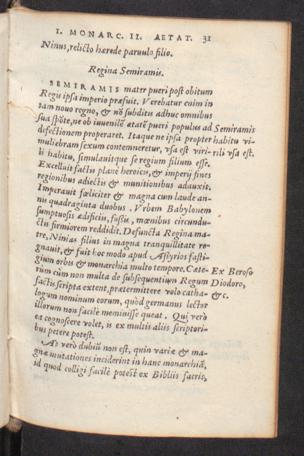 I. MONARC. II. AETAT. 31
Ninus, relicto hærede paruulo filio.
Regina Semiramis.
SEMIRAMIS mater pueri post obitum
Regis ipsa imperio præfuit. Verebatur enim in
tam nouo regno, & nõ subditis adhuc omnibus
sua spõte, ne ob iuuenilē ætatē pueri populus ad
defectionem properaret. Itaque ne ipsa propter
muliebrem sexum contemneretur, vsa est viri-
li habitu, simulauitque se regium filium esse.
Excelluit factis planè heroicis, & imperij fines
regionibus adiectis & munitionibus adauxit.
Imperauit fœliciter & magna cum laude an-
nis quadraginta duobus. Vrbem Babylonem
sumptuosis ædificiis, fossis, mœnibus circundu-
ctis firmiorem reddidit. Defuncta Regina ma-
tre, Ninias filius in magna tranquillitate re-
gnauit, & fuit hoc modo apud Assyrios fasti-
gium orbis & monarchia multo tempore. Cæte-
rùm cùm non multa de subsequentium Regum
factis scripta extent, prætermittere volo catha-
logum nominum eorum, quòd germanus lector
illorum non facilè meminisse queat. Qui verò
ea cognoscere volet, is ex multis aliis scriptori-
bus petere potest.
At verò dubiũ non est, quin variæ & ma-
gnæ mutationes inciderint in hanc monarchiã,
id quod colligi facilè potest ex Bibliis sacris,
Semiramis
virili vsa est
habitu
Ex Beroso
Diodoro,
&c.